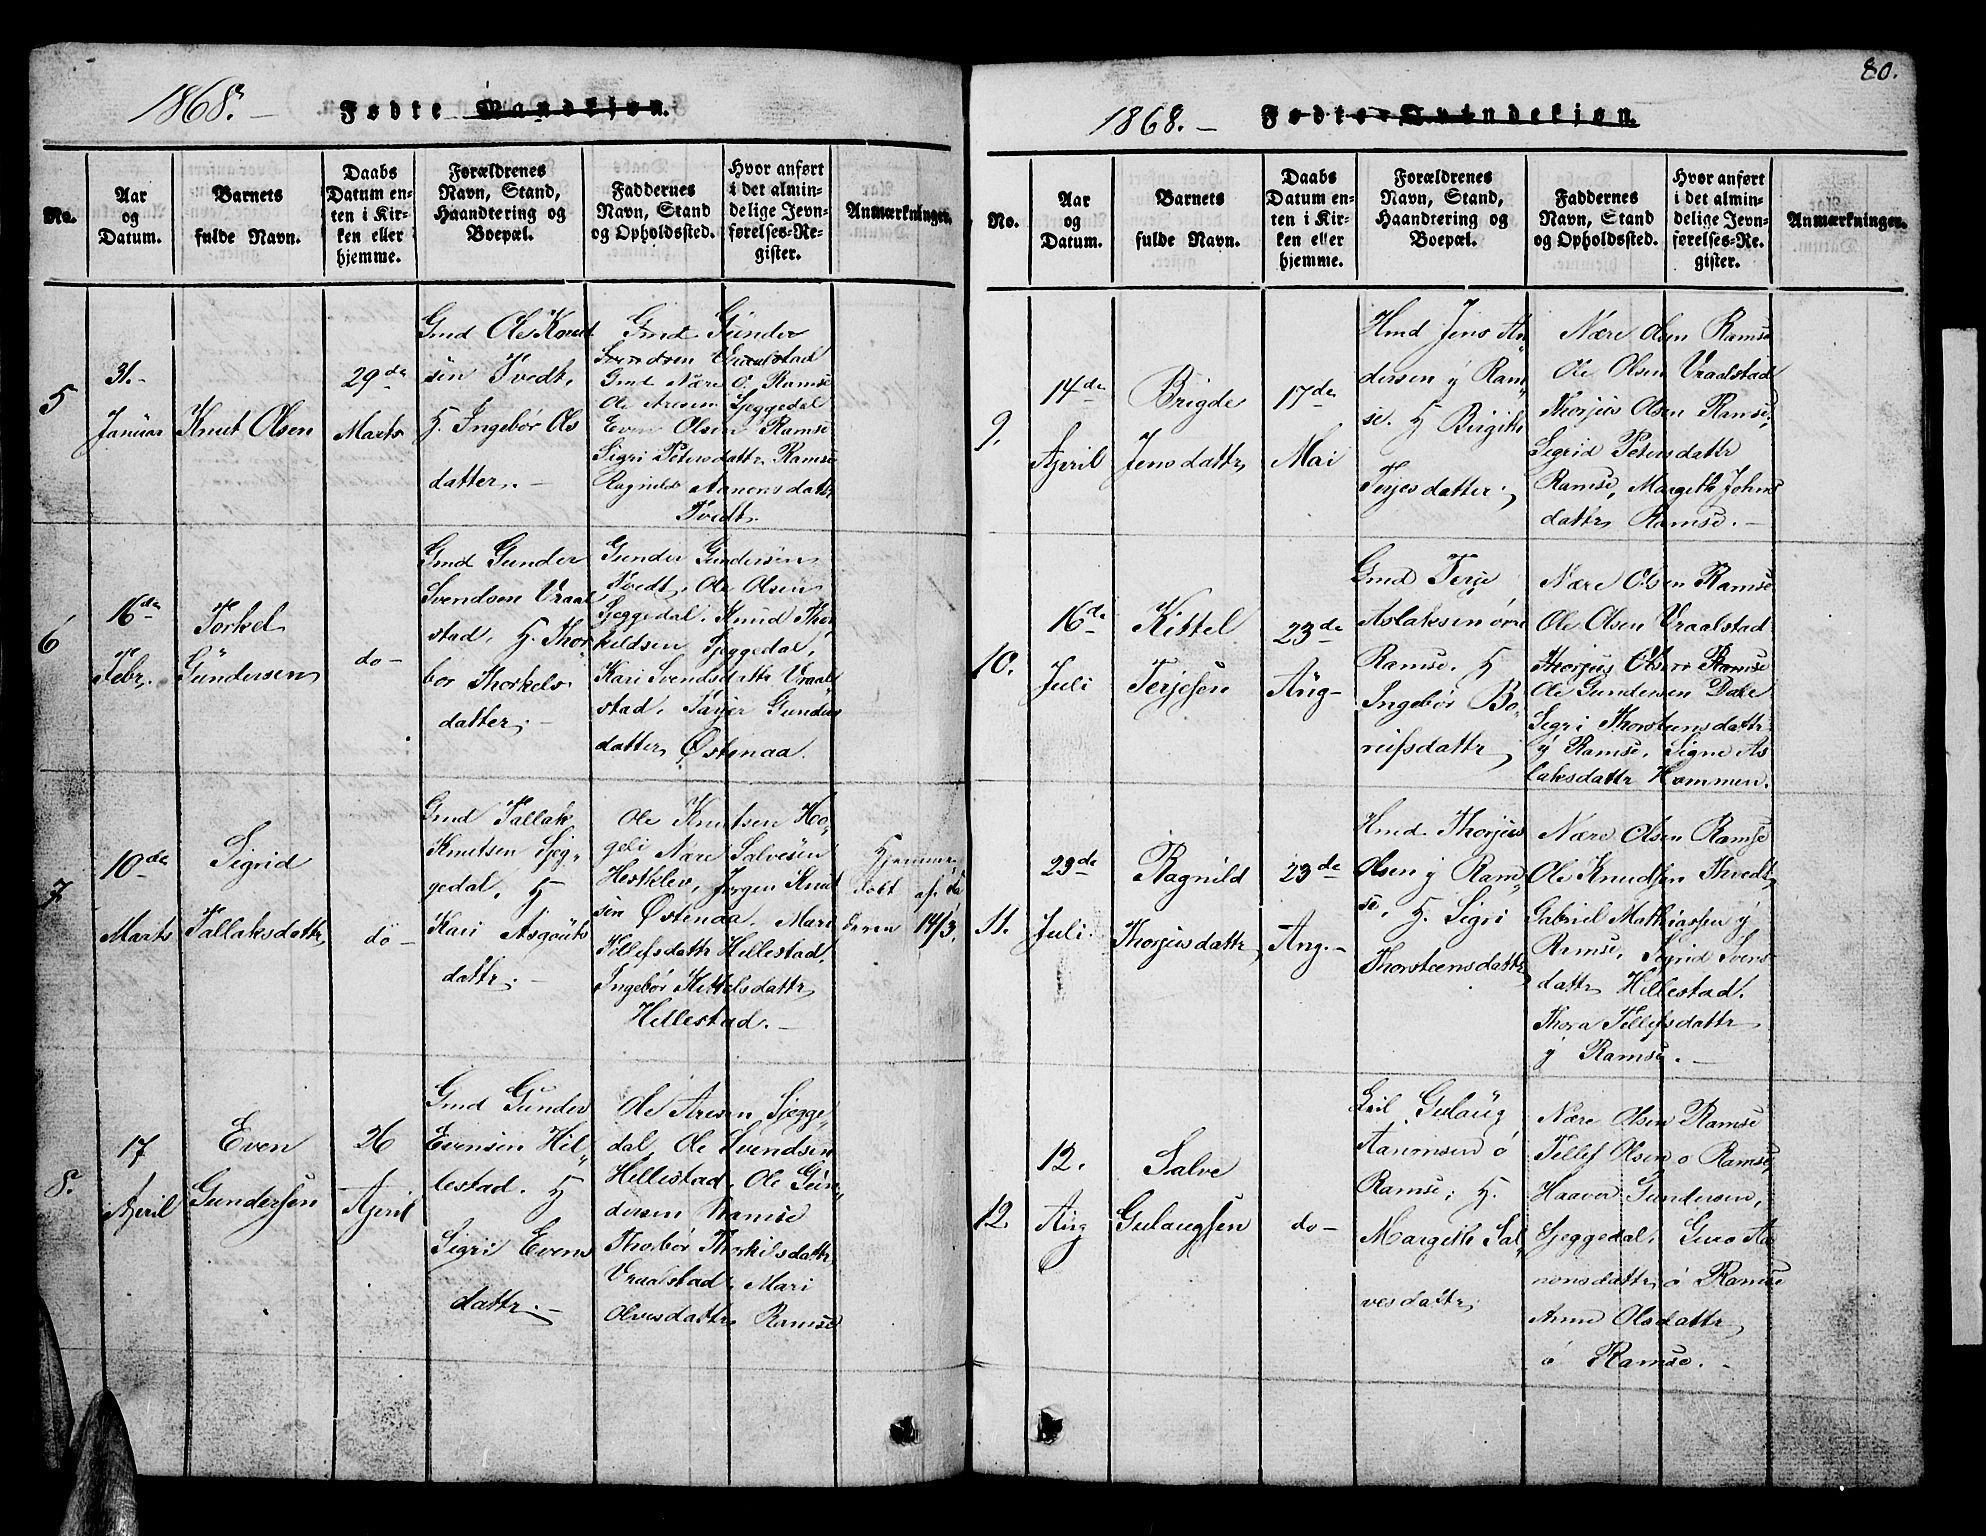 1868.
Fødte Mandkjøn.
No.
Aar
og
Datum.
Barnets
fulde Navn.
Daabs
Datum en-
ten i Kir-
ken eller
hjemme.
Forældrenes
Navn, Stand,
Haandtering og
Boepæl.
Faddernes
Navn, Stand
og Opholdssted.
Hvor anført
i det almin-
delige Jevn-
førelses-Re-
gister.
Anmærkninger.
5
31.
Januar
Knut Olsen
29de
Marts
Gmd Ole Knud
sen Tvedt,
H. Ingebor Ols
datter. —
Gmd Gunder
Svendsen Vraalstad
Gmd Nære O. Ramse
Ole Aresen Sjeggedal
Even Olsen Ramse
Sigri Petersdattr Ramse
Ragnild Aanonsdattr
Tvedt.
6
16de
Febr.
Torkel
Gundersen
do —
Gmd Gunder
Svendsen Vraal
stad, H. Thor
bor Thorkels
datter. —
Gunder Gundersen
Tvedt, Ole Olsen
Sjeggedal, Knud Thor
kildsen Sjeggedal,
Kari Svendsdattr Vraal
stad, Tarjer Gunders
datter Østenaa.
7
10de
Marts
Sigrid
Tallaksdattr
do —
Gmd Tallak
Knutsen Sjeg-
gedal, H
Kari Asgouts
dattr. —
Ole Knutsen Ho-
geli Nære Salvesen
Hesklev, Jørgen Knut
sen Østenaa, Mari
Tellefsdattr Hillestad,
Ingebor Kittelsdattr
Hillestad. —
Hjemme
døbt af Fa
deren 14/3.
8.
17
April
Even
Gundersen
26
April
Gmd Gunder
Evensen Hil-
lestad. H
Sigri Evens
dattr. —
Ole Aresen Sjegge-
dal Ole Svendsen
Hillestad, Ole Gun-
dersen Ramse
Thorbor Thorkilsdattr
Vraalstad, Mari
Olvesdattr Ramse
80.
1868. —
Fødte Qvindekjøn.
No.
Aar
og
Datum.
Barnets
fulde Navn.
Daabs
Datum en-
ten i Kir-
ken eller
hjemme.
Forældrenes
Navn, Stand,
Haandtering og
Boepæl.
Faddernes
Navn, Stand
og Opholdssted.
Hvor anført
i det almin-
delige Jevn-
førelses-Re-
gister.
Anmærkninger.
9.
14de
April
Brigde
Jensdattr
17de
Mai
Hmd Jens An
dersen y Ram-
se. H Birgithe
Terjesdatter.
Nære Olsen Ramse
Ole Olsen Vraalstad
Thorjus Olsen Ramse,
Sigrid Petersdattr
Ramse, Margethe Johns
dattr Ramse. —
10.
16de
Juli
Kittel
Terjesen
23de
Aug —
Gmd Terje
Aslaksen øvre
Ramse. H
Ingebor Bo-
rufsdattr
Nære Olsen Ramse
Ole Olsen Vraalstad
Thorjus Olsen Ramse
Ole Gundersen Dale
Sigri Thorsteensdattr
y Ramse, Signe As
laksdattr Hommen.
11.
23de
Juli.
Ragnild
Thorjusdattr
23de
Aug. —
Hmd. Thorjus
Olsen y Ram-
se, H. Sigri
Thorsteensdattr
Nære Olsen Ramse
Ole Knudsen Thvedt,
Gabriel Mathiassen y
Ramse, Sigrid Svens
dattr Hillestad.
Thora Tellefsdattr
y Ramse. —
12.
12.
Aug
Salve
Gulaugsen
do —
Gulaug
Aanonsen ø
Ramse, H.
Margethe Sal-
vesdattr
Nære Olsen Ramse
Tellef Olsen o Ramse,
Haavor Gundersen,
Sjeggedal, Guro Aa
nonsdattr ø Ramse
Anne Olsdattr
ø Ramse. —